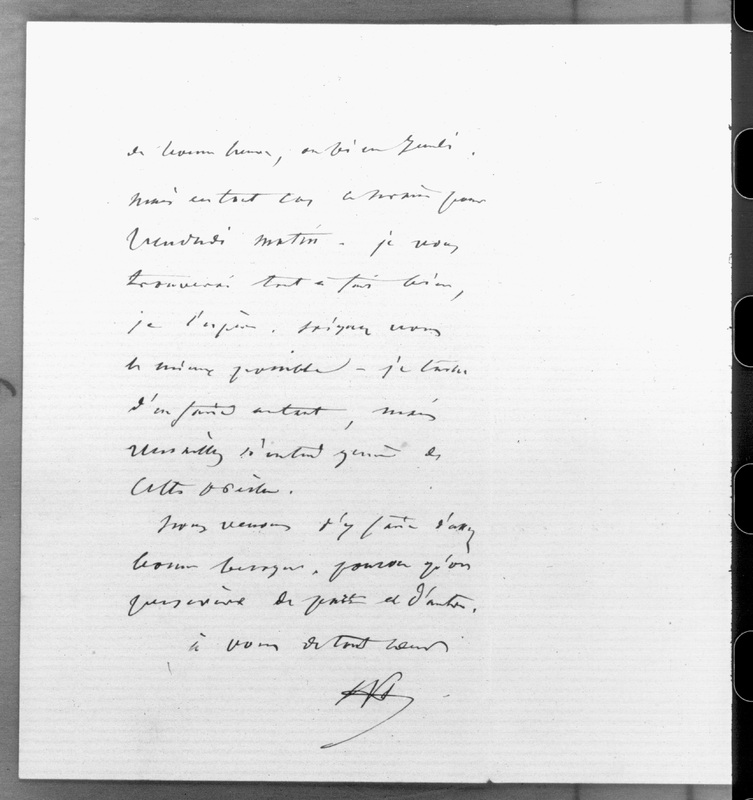 de bonne heure, ou bien Jeudi.
mais en tout cas à Paris pour
Vendredi matin – je vous
trouverai tout à fait bien,
je l'espère. soignez vous
le mieux possible – je tache
d'en faire autant, mais
Versailles n'entend guère de
cette oreille.
Nous venons d'y faire d'assez
bonne besogne, pourvu qu'on
persévère de part et d'autre.
à vous de tout coeur